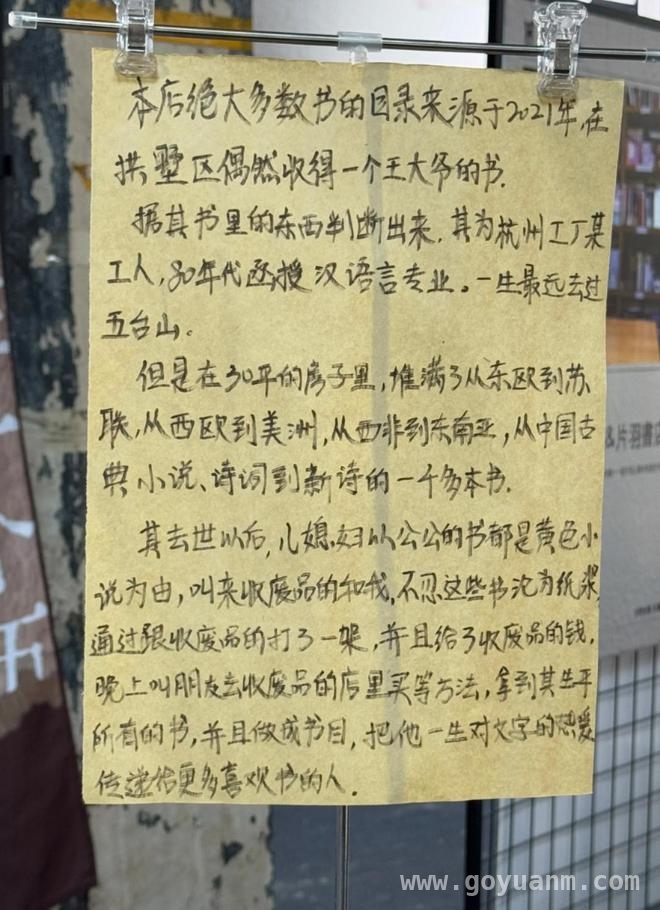 本店绝大多数书的目录来源于2021年,在
拱墅区偶然收得一个王大爷的书.
据其书里的东西判断出来,其为杭州工厂某
工人,80年代函授汉语言专业。一生最远去过
五台山。
但是在30平的房子里,堆满了从东欧到苏
联,从西欧到美洲,从西非到东南亚,从中国古
典小说、诗词到新诗的一千多本书.
其去世以后,儿媳妇以公公的书都是黄色小
说为由,叫来收废品的和我,不忍这些书沦为纸浆,
通过跟收废品的打了一架,并且给了收废品的钱,
晚上叫朋友去收废品的店里买等方法,拿到其生平
所有的书,并且做成书目,把他一生对文字的热爱
传递给更多喜欢书的人.
&片羽書店
www.goyuanm.com